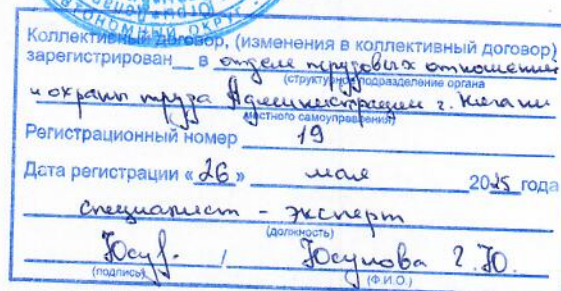 АВТОНОМНЫЙ ОКРУГ
Коллективный договор, (изменения в коллективный договор)
зарегистрирован__ в отделе трудовых отношений
(структурное подразделение органа
и охраны труда Администрации г. Когалыма
местного самоуправления)
Регистрационный номер 19
Дата регистрации «26» мая 2025 года
специалист - эксперт
(должность)
Юсуф. / Юсупова Г.Ю.
(подпись) (Ф.И.О.)